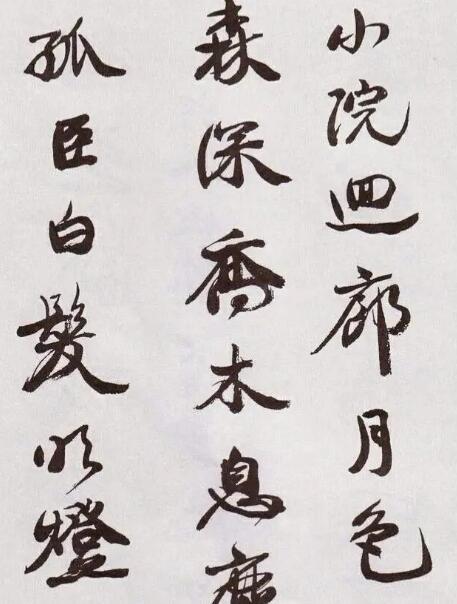 小院迴廊月色
森深喬木息
孤臣白髮明燈